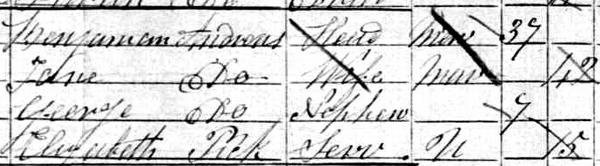 Benjamin Andrews Head Mar 37
Jane Do Wife Mar 42
George Do Nephew 7
Elizabeth Pick Serv U 15